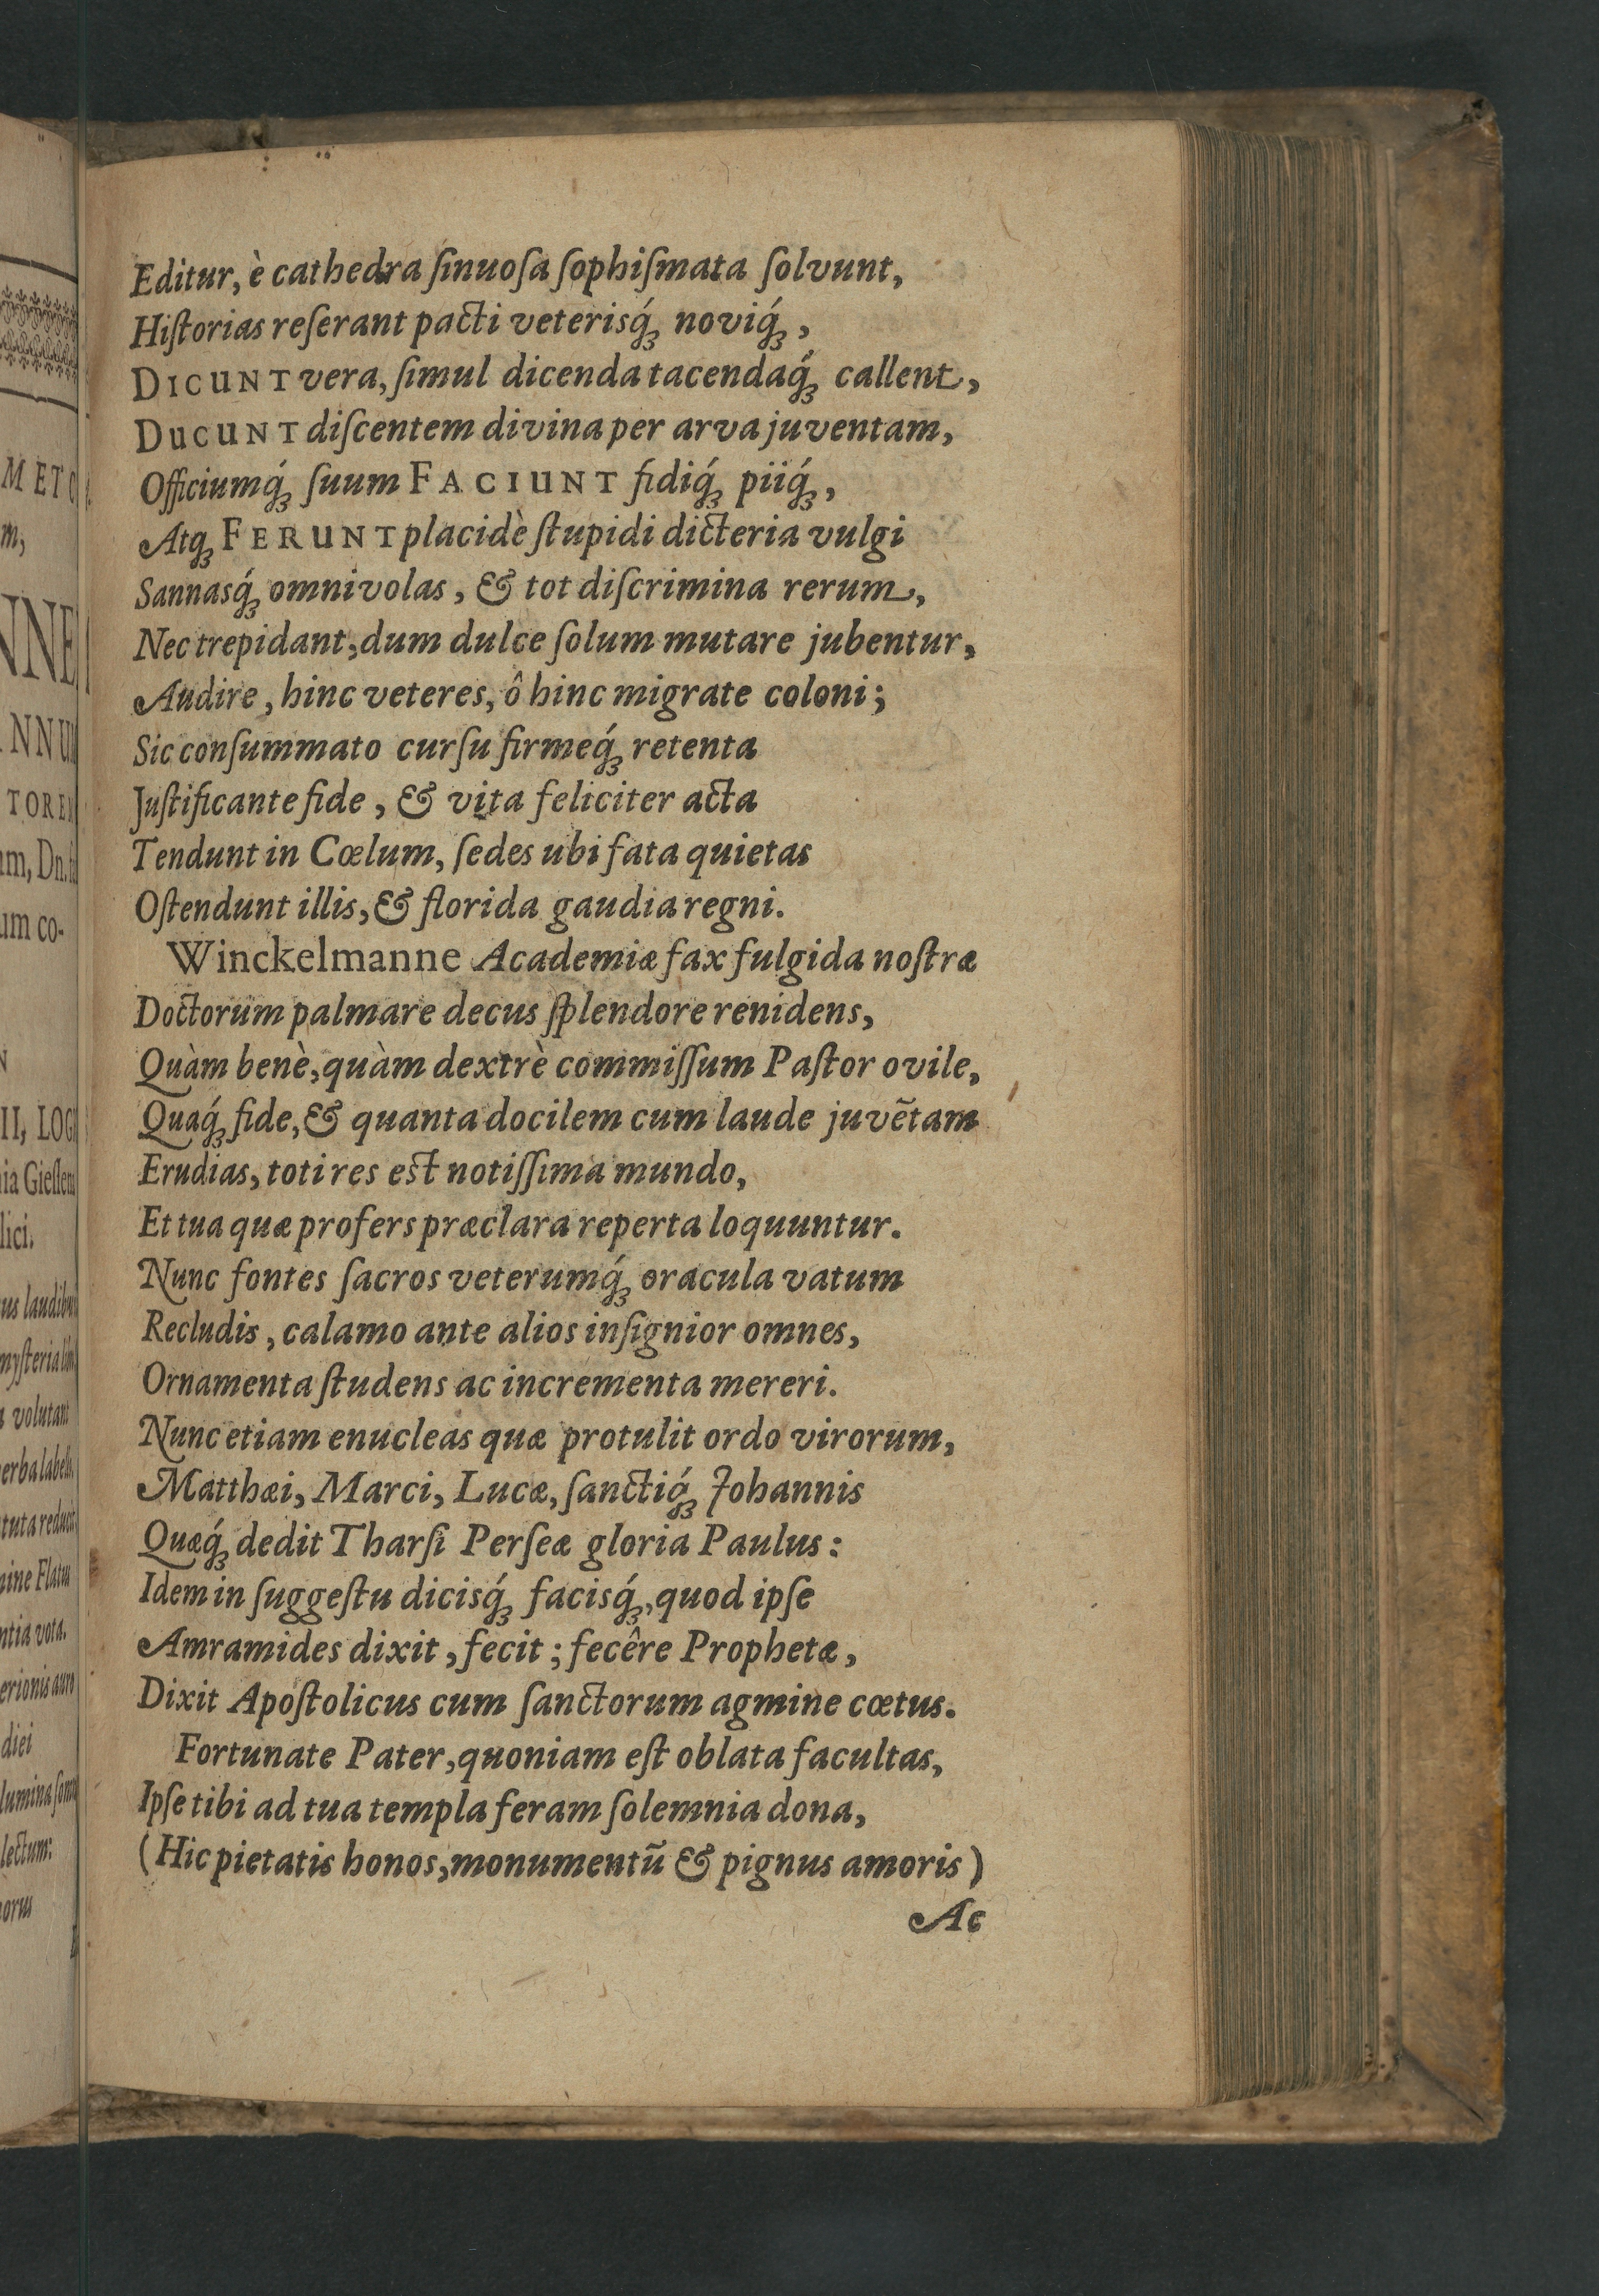 Editur, è cathedra ſinuoſa ſophiſmata ſolvunt,
Hiſtorias reſerant pacti veterisq́ꝫ noviq́ꝫ,
DICUNT vera, ſimul dicenda tacendaq́ꝫ callent,
DUCUNT diſcentem divina per arva juventam,
Officiumq́ꝫ ſuum FACIUNT fidiq́ꝫ piiq́ꝫ,
Atqꝫ FERUNT placidè ſtupidi dicteria vulgi
Sannasq́ꝫ omnivolas, & tot diſcrimina rerum,
Nec trepidant, dum dulce ſolum mutare jubentur,
Audire, hinc veteres, ô hinc migrate coloni;
Sic conſummato curſu firmeq́ꝫ retenta
Juſtificante fide, & vita feliciter acta
Tendunt in Cœlum, ſedes ubi fata quietas
Oſtendunt illis, & florida gaudia regni.
Winckelmanne Academiæ fax fulgida noſtræ
Doctorum palmare decus ſplendore renidens,
Quàm benè, quàm dextrè commiſſum Paſtor ovile,
Quaq́ꝫ fide, & quanta docilem cum laude juvẽtam
Erudias, toti res est notiſſima mundo,
Et tua quæ profers præclara reperta loquuntur.
Nunc fontes ſacros veterumq́ꝫ oracula vatum
Recludis, calamo ante alios inſignior omnes,
Ornamenta ſtudens ac incrementa mereri.
Nunc etiam enucleas quæ protulit ordo virorum,
Matthæi, Marci, Lucæ, ſanctiq́ꝫ Johannis
Quæq́ꝫ dedit Tharſi Perſeæ gloria Paulus:
Idem in ſuggeſtu dicisq́ꝫ facisq́ꝫ, quod ipſe
Amramides dixit, fecit; fecêre Prophetæ,
Dixit Apoſtolicus cum ſanctorum agmine cœtus.
Fortunate Pater, quoniam eſt oblata facultas,
Ipſe tibi ad tua templa feram ſolemnia dona,
(Hic pietatis honos, monumentũ & pignus amoris)
Ac